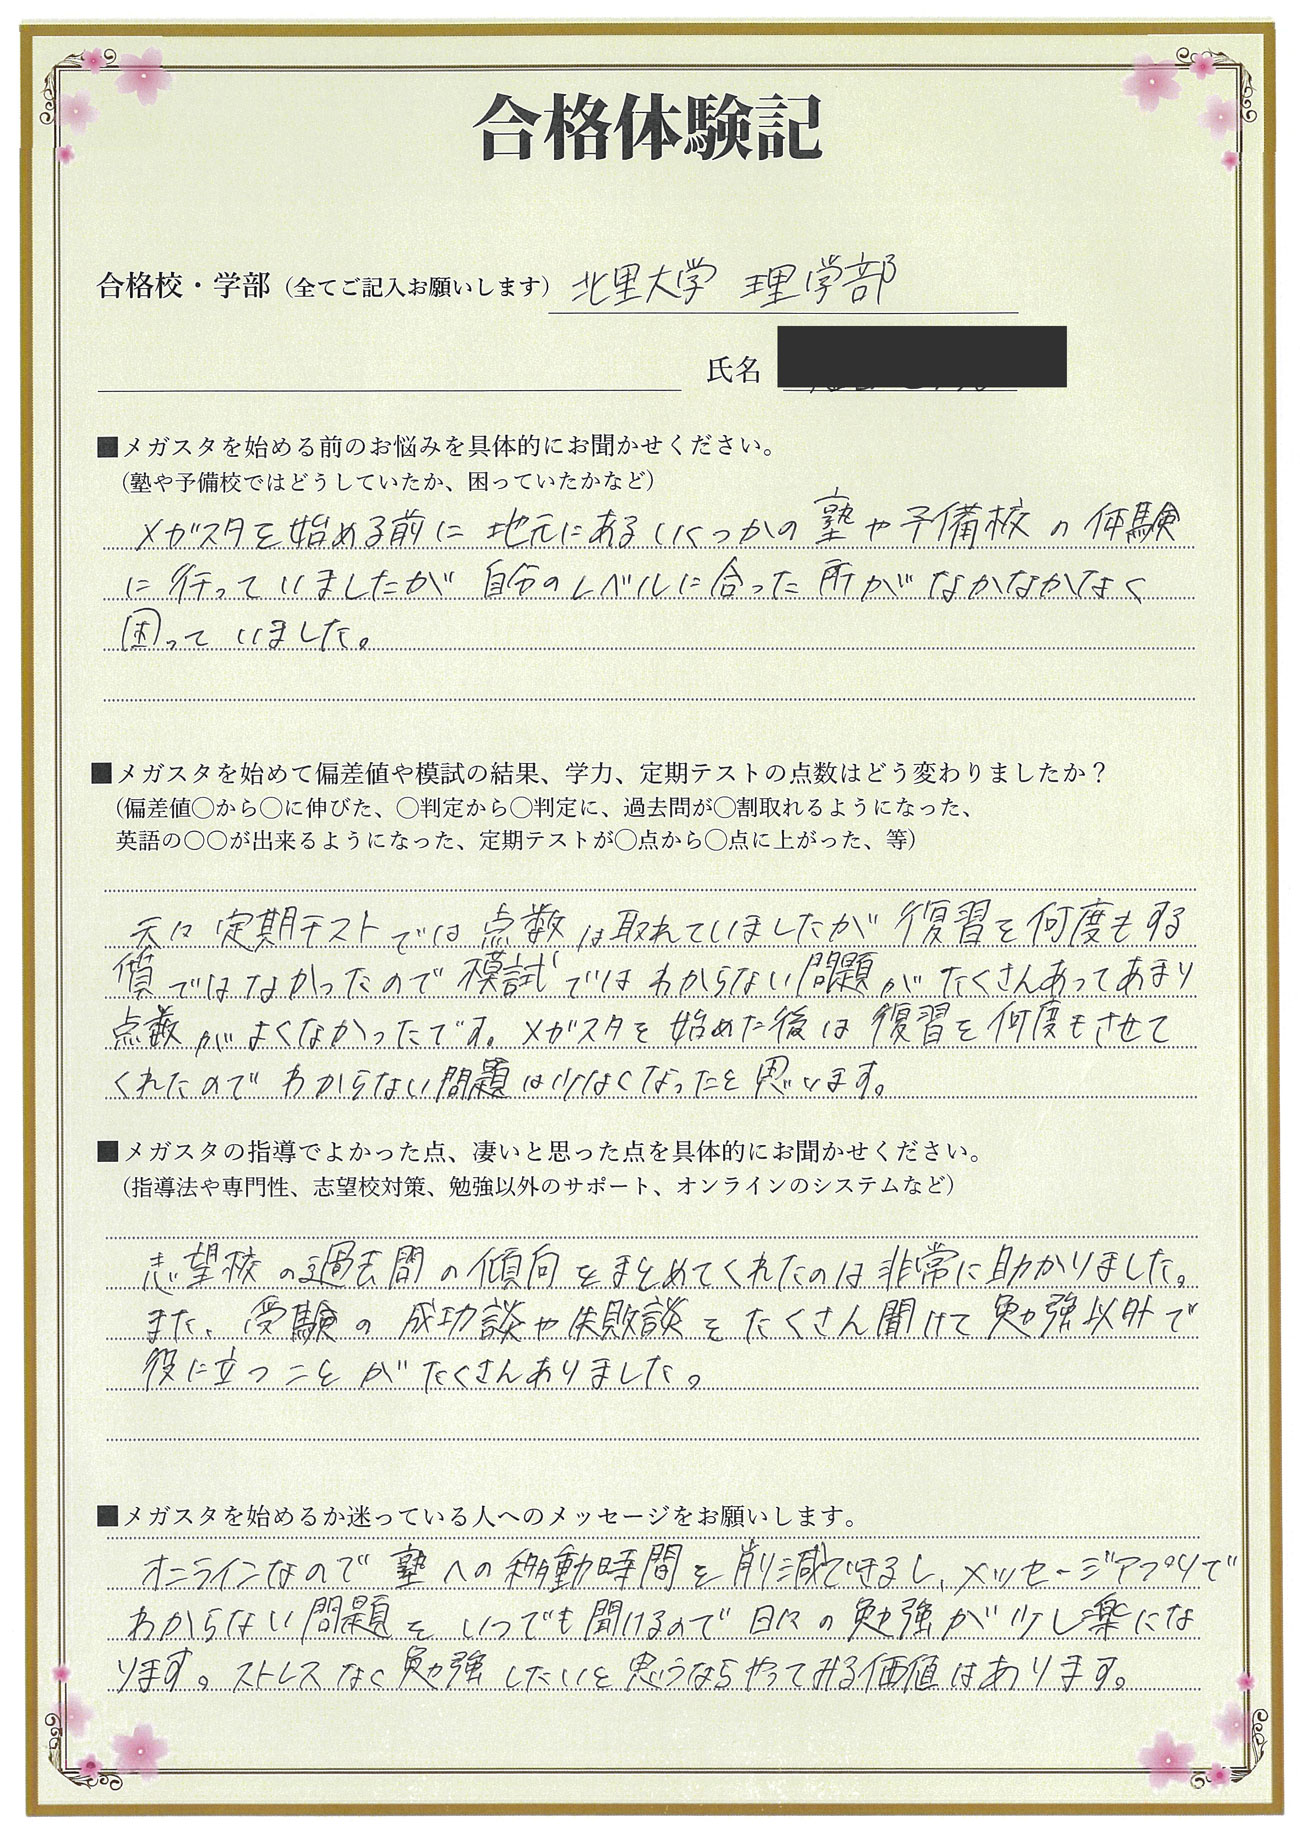 合格体験記
合格校・学部（全てご記入お願いします） 北里大学 理学部
氏名
■メガスタを始める前のお悩みを具体的にお聞かせください。
（塾や予備校ではどうしていたか、困っていたかなど）
メガスタを始める前に 地元にあるいくつかの 塾や予備校の体験
に行っていましたが 自分のレベルに合った所がなかなかなく
困っていました。
■メガスタを始めて偏差値や模試の結果、学力、定期テストの点数はどう変わりましたか？
（偏差値〇から〇に伸びた、〇判定から〇判定に、過去問が〇割取れるようになった、
英語の〇〇が出来るようになった、定期テストが〇点から〇点に上がった、等）
元々定期テストでは点数は取れていましたが復習を何度もする
質ではなかったので模試ではわからない問題がたくさんあってあまり
点数がよくなかったです。メガスタを始めた後は復習を何度もさせて
くれたのでわからない問題は少なくなったと思います。
■メガスタの指導でよかった点、凄いと思った点を具体的にお聞かせください。
（指導法や専門性、志望校対策、勉強以外のサポート、オンラインのシステムなど）
志望校の過去問の傾向をまとめてくれたのは非常に助かりました。
また、受験の成功談や失敗談をたくさん聞けて勉強以外で
役に立つことがたくさんありました。
■メガスタを始めるか迷っている人へのメッセージをお願いします。
オンラインなので塾への移動時間を削減できるし、メッセージアプリで
わからない問題をいつでも聞けるので日々の勉強が少し楽にな
ります。ストレスなく勉強したいと思うならやってみる価値はあります。